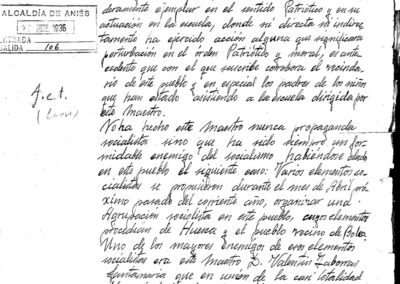 ALCALDÍA DE ANIÉS
1936
ENTRADA
SALIDA 106
J.e.t.
deramente ejemplar en el sentido Patriótico y en su
actuación en la escuela, donde ni directa ni indirec
tamente ha ejercido acción alguna que significara
perturbación en el orden Patriótico y moral, el ante
cedente que con el que suscribe corrobora el vecinda
rio de este pueblo y en especial los padres de los niños
que han estado asistiendo a la escuela dirigida por
este Maestro.
No ha hecho este Maestro nunca propaganda
socialista sino que ha sido siempre un for
midable enemigo del socialismo habiéndose dado
en este pueblo el siguiente caso: Varios elementos so
cialistas se propusieron durante el mes de Abril pró
ximo pasado del corriente año, organizar una
Agrupación socialista en este pueblo, cuyos elementos
procedian de Huesca y el pueblo vecino de Bolea.
Uno de los mayores enemigos de esos elementos
socialistas era este Maestro D. Valentín Zaborras
Santamaria que en unión de la casi totalidad